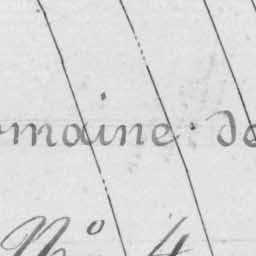 omaine de
N° 4